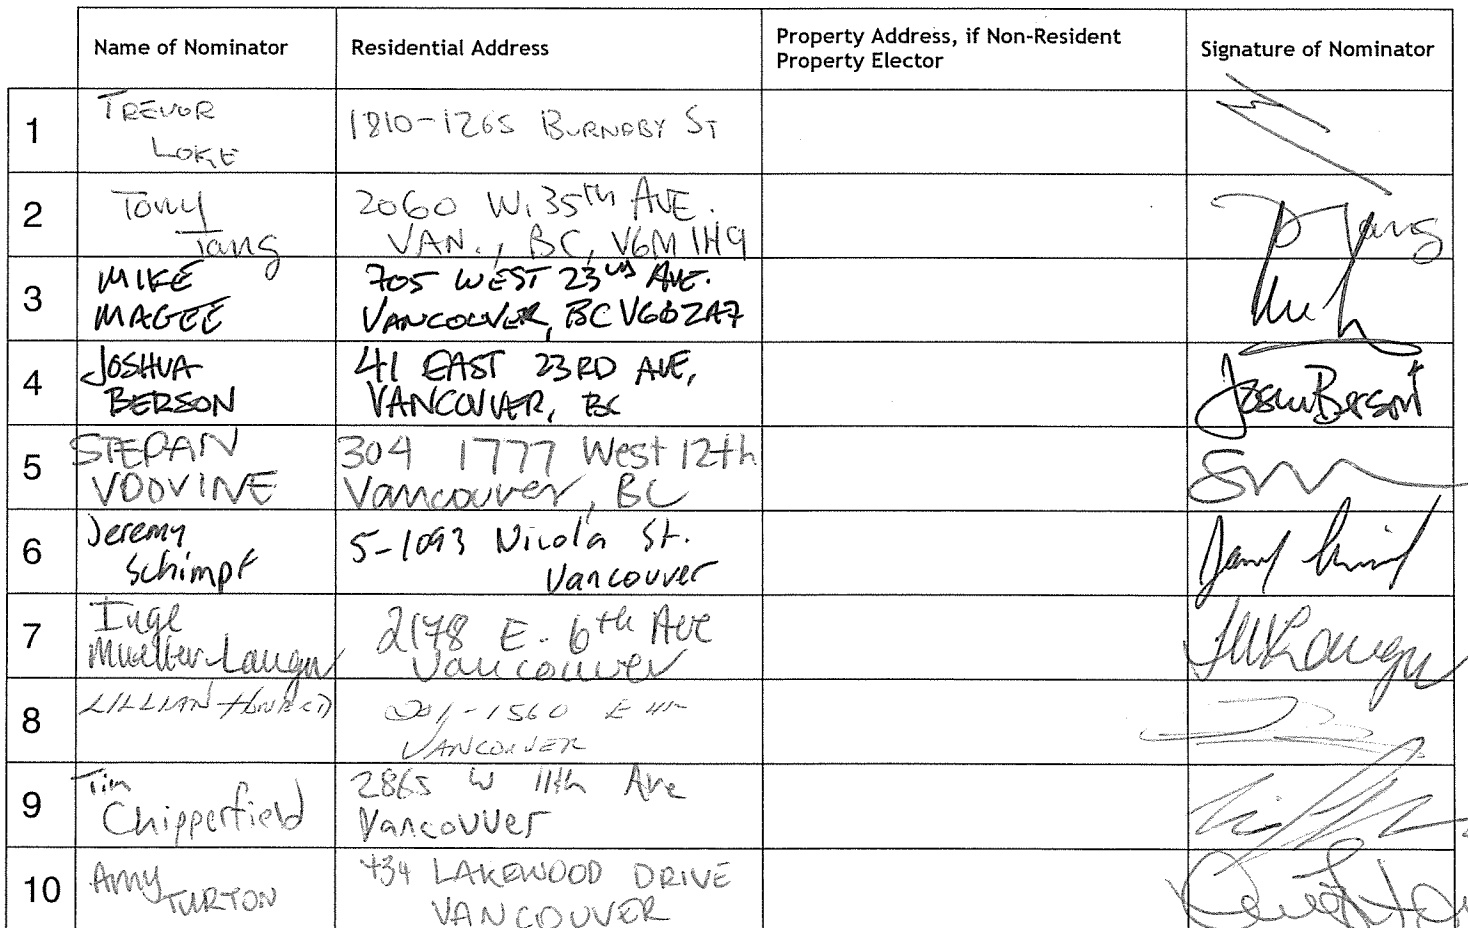 Name of Nominator
Residential Address
Property Address, if Non-Resident
Property Elector
Signature of Nominator
1
TREVOR
LOKE
1810-1265 BURNABY ST
2
Tony
Tang
2060 W. 35th AVE.
VAN., BC, V6M 1H9
Tang
3
MIKE
MAGEE
705 WEST 23rd AVE.
VANCOUVER, BC V6B 2A7
4
JOSHUA
BERSON
41 EAST 23RD AVE,
VANCOUVER, BC
Joshua Berson
5
STEPAN
VDOVINE
304 1777 West 12th
Vancouver, BC
6
Jeremy
Schimpf
5-1093 Nicola St.
Vancouver
7
Inge
Mueller-Langer
2178 E. 6th Ave
Vancouver
8
LILLIAN
201-1560 E 4th
VANCOUVER
9
Tim
Chipperfield
2865 W 11th Ave
Vancouver
10
Amy
TURTON
434 LAKEWOOD DRIVE
VANCOUVER